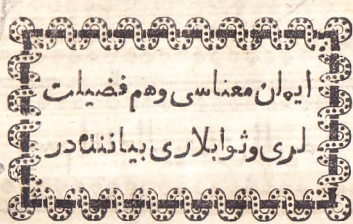 ايمان معناسى وهم فضيلت
لرى وثوابلارى بياننده در